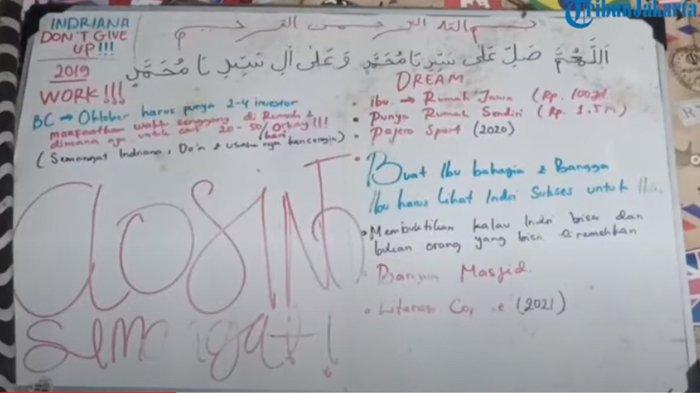 TribunJakarta
INDRIANA
DON'T GIVE
UP!!!
2019
WORK!!!
BC → Oktober harus punya 2-4 investor
manfaatkan waktu senggang di Rumah &
dimana nya untuk cari 20-50/Orang!!!
hari
(Semangat Indriana, Do'a & usaha nya kencengin)
CLOSING
semangat!
بسم الله الرحمن الرحيم
اَللّٰهُمَّ صَلِّ عَلٰى سَيِّدِنَا مُحَمَّدٍ وَعَلٰى اٰلِ سَيِّدِنَا مُحَمَّدٍ
DREAM
• ibu → Rumah Jawa (Rp. 100jt)
• Punya Rumah Sendiri (Rp. 1.5M)
• Pajero Sport (2020)
• Buat Ibu bahagia & Bangga
Ibu harus Lihat Indri Sukses untuk Ibu
• Membuktikan kalau Indri bisa dan
bukan orang yang bisa diremehkan
• Bangun Masjid
• Literasi (2021)